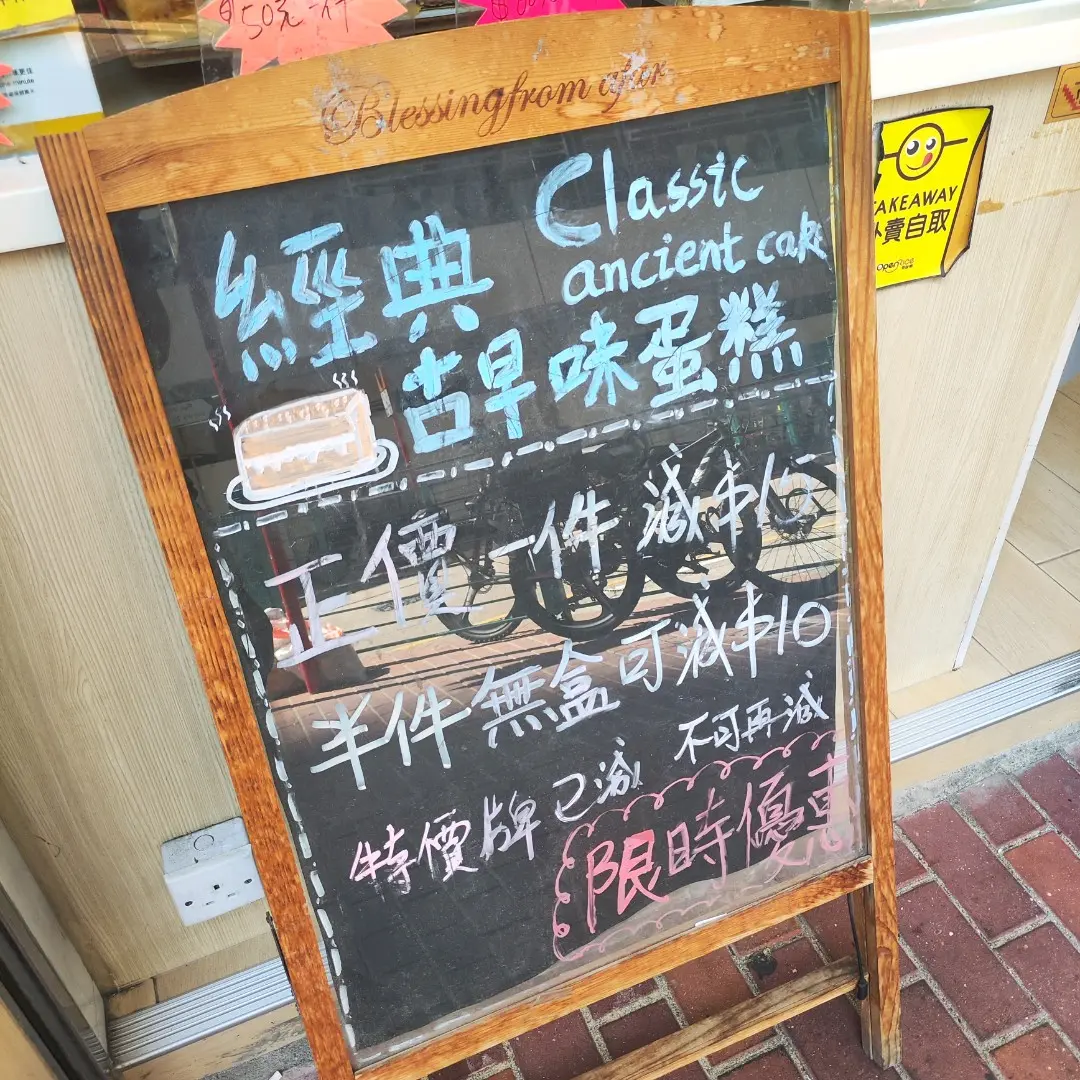 50元一件
Blessing from afar
經典
Classic
ancient cake
古早味蛋糕
正價一件減$15
半件無盒可減$10
特價牌已減 不可再減
限時優惠
TAKEAWAY
外賣自取
OpenRice